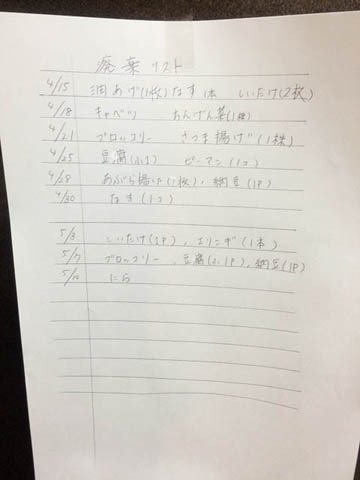 廃棄リスト
4/15 油あげ(1枚)なす1本 しいたけ(2枚)
4/18 キャベツ ちんげん菜(1株)
4/21 ブロッコリー さつま揚げ(1株)
4/25 豆腐 ピーマン(1コ)
4/28 あぶら揚げ(1枚)、納豆(1P)
4/30 なす(1コ)
5/3 しいたけ(1P)、エリンギ(1本)
5/7 ブロッコリー、豆腐(小1P)、納豆(1P)
にら